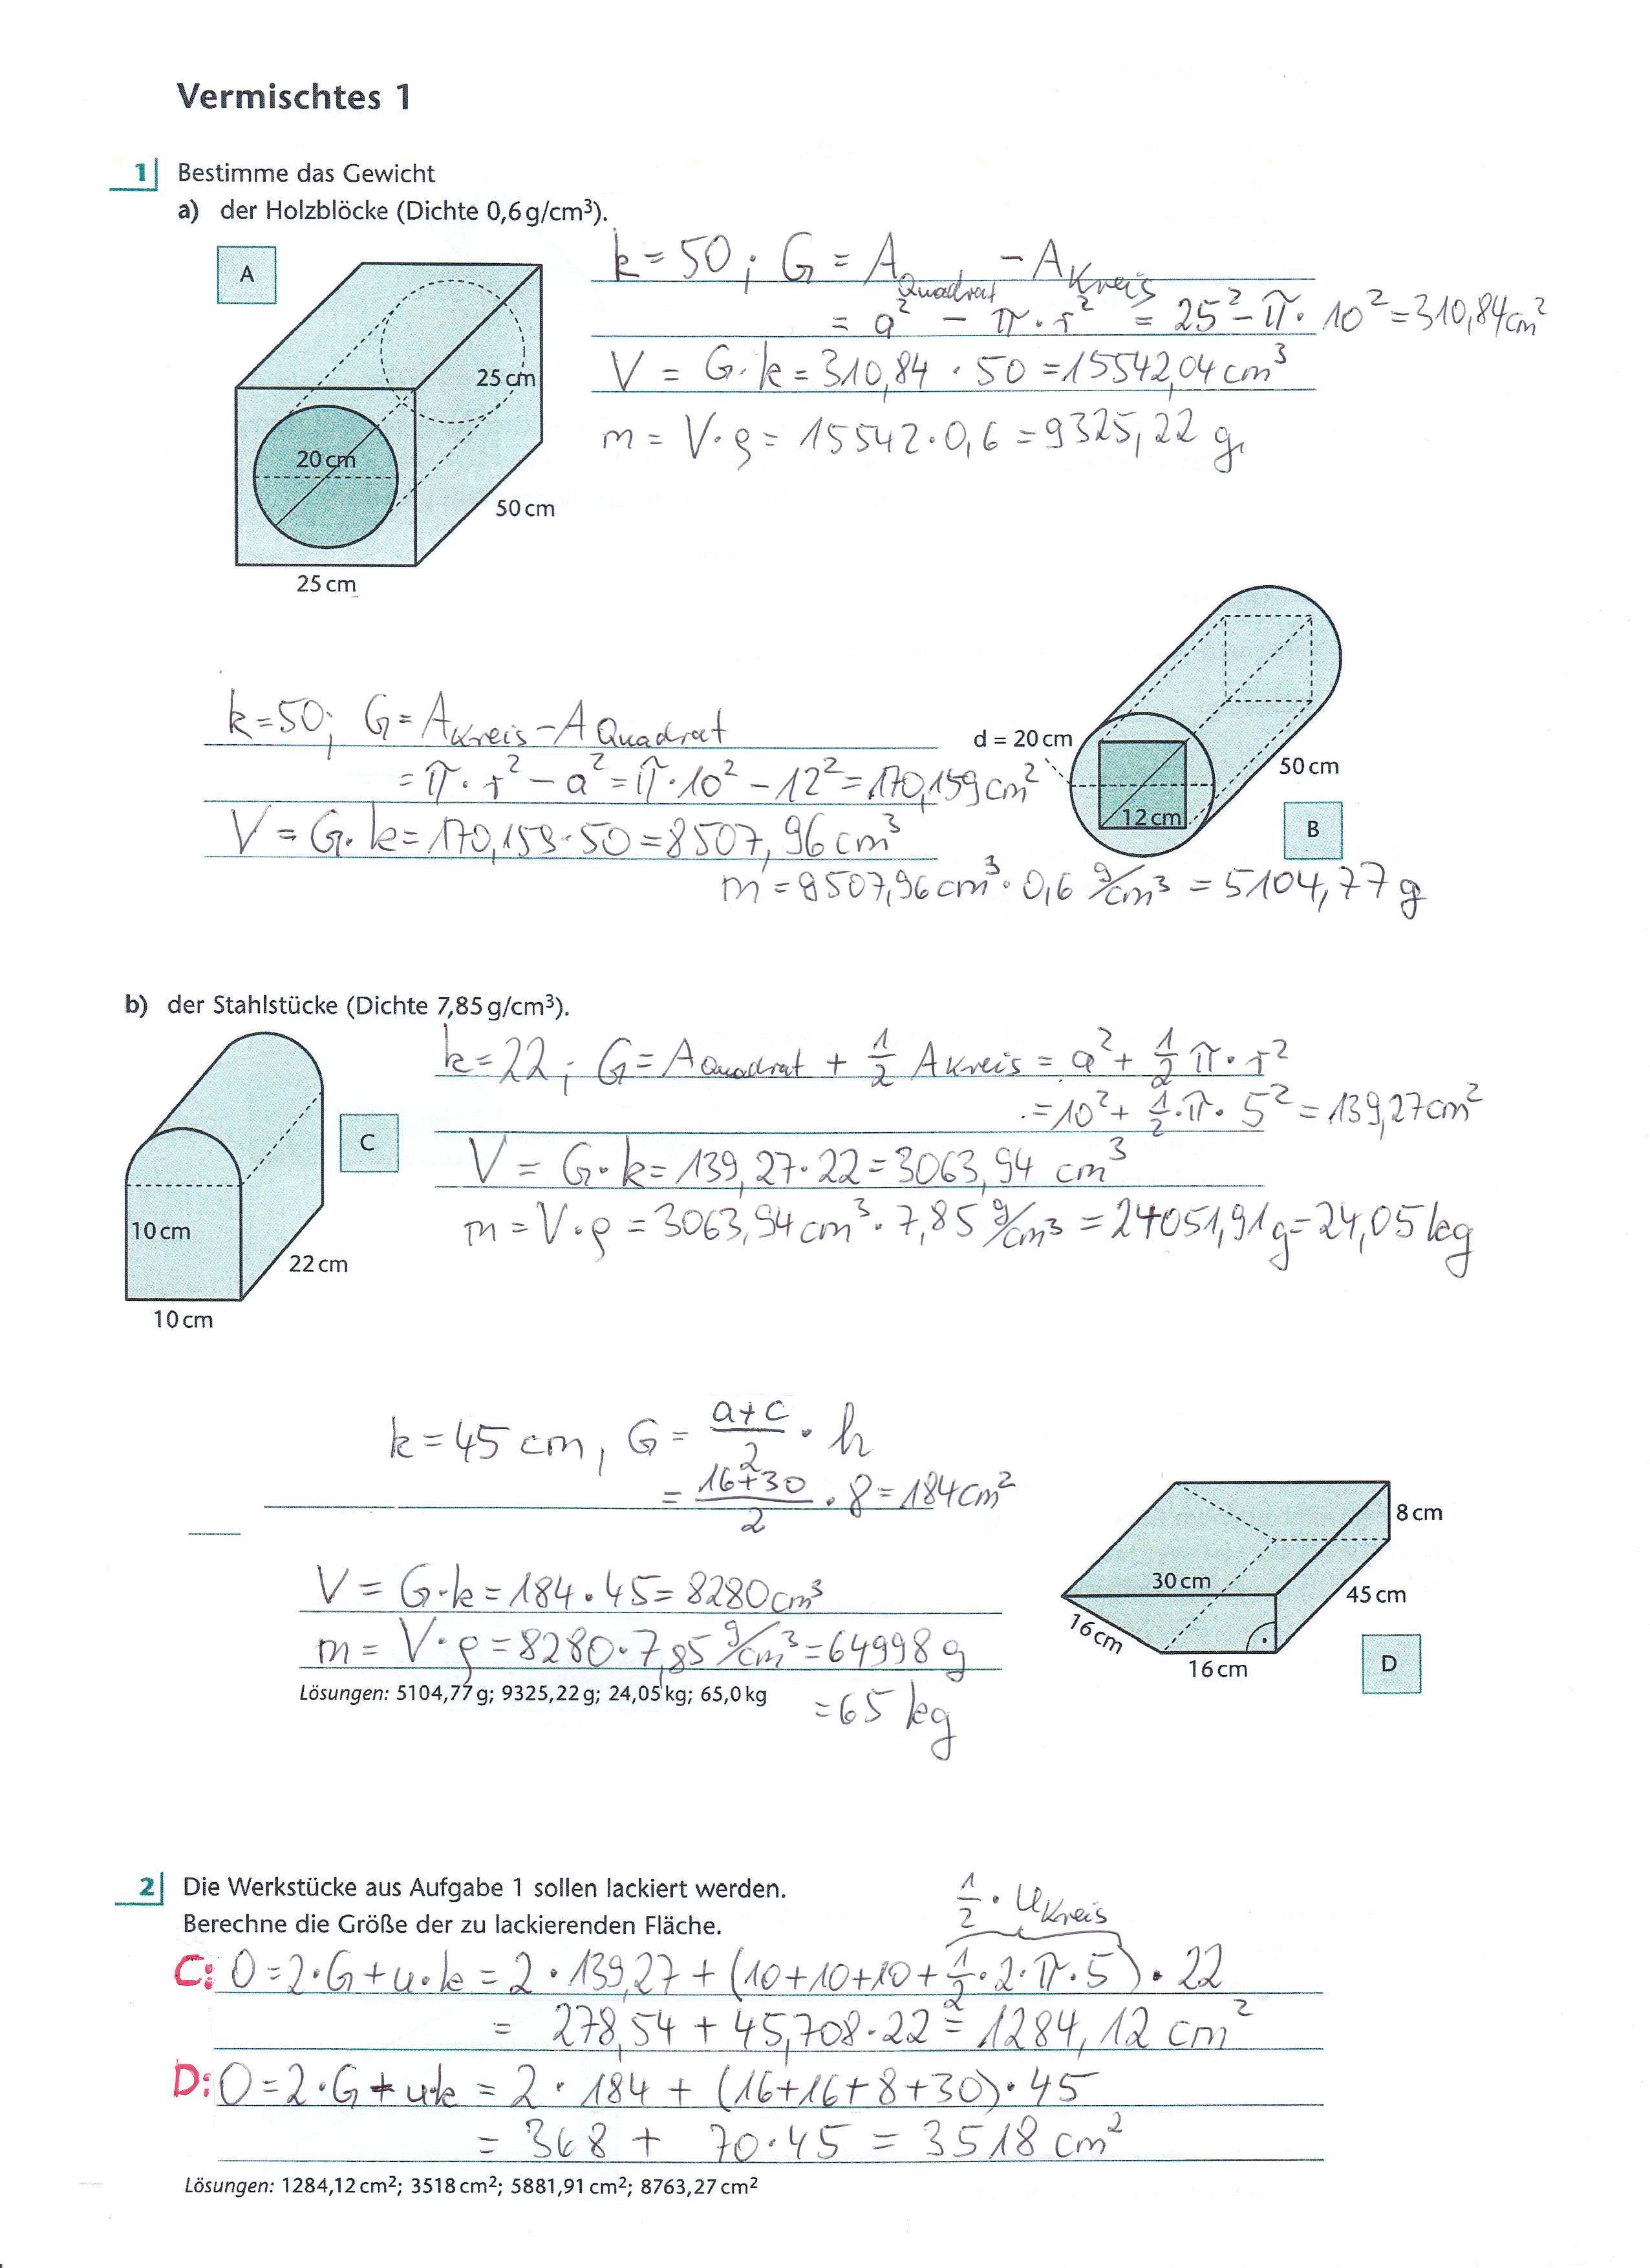 Vermischtes 1
1 Bestimme das Gewicht
a) der Holzblöcke (Dichte 0,6 g/cm³).
A
25 cm
20 cm
50 cm
25 cm
k = 50 ; G = A Quadrat - A Kreis
= a² - π · r² = 25² - π · 10² = 310,84 cm²
V = G · k = 310,84 · 50 = 15542,04 cm³
m = V · ρ = 15542 · 0,6 = 9325,22 g
k = 50; G = A Kreis - A Quadrat
= π · r² - a² = π · 10² - 12² = 170,159 cm²
V = G · k = 170,159 · 50 = 8507,96 cm³
m = 8507,96 cm³ · 0,6 g/cm³ = 5104,77 g
d = 20 cm
50 cm
12 cm
B
b) der Stahlstücke (Dichte 7,85 g/cm³).
k = 22 ; G = A Quadrat + 1/2 A Kreis = a² + 1/2 π · r²
= 10² + 1/2 · π · 5² = 139,27 cm²
V = G · k = 139,27 · 22 = 3063,94 cm³
m = V · ρ = 3063,94 cm³ · 7,85 g/cm³ = 24051,91 g = 24,05 kg
C
10 cm
22 cm
10 cm
k = 45 cm, G = (a+c)/2 · h
= (16+30)/2 · 8 = 184 cm²
V = G · k = 184 · 45 = 8280 cm³
m = V · ρ = 8280 · 7,85 g/cm³ = 64998 g
= 65 kg
8 cm
30 cm
45 cm
16 cm
16 cm
D
Lösungen: 5104,77 g; 9325,22 g; 24,05 kg; 65,0 kg
2 Die Werkstücke aus Aufgabe 1 sollen lackiert werden.
Berechne die Größe der zu lackierenden Fläche.
1/2 · u Kreis
C: O = 2 · G + u · k = 2 · 139,27 + (10+10+10+ 1/2 · 2 · π · 5) · 22
= 278,54 + 45,708 · 22 = 1284,12 cm²
D: O = 2 · G + u·k = 2 · 184 + (16+16+8+30) · 45
= 368 + 70 · 45 = 3518 cm²
Lösungen: 1284,12 cm²; 3518 cm²; 5881,91 cm²; 8763,27 cm²